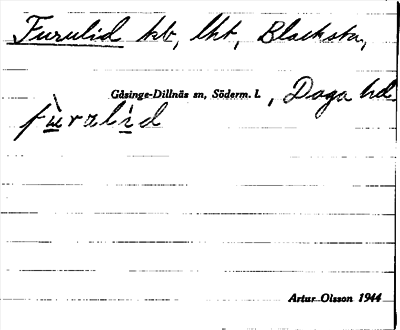 Furulid kb, lht, Blacksta,
Gåsinge-Dillnäs sn, Söderm. l. , Daga hd
fu̲̇ralı̲̀d
Artur Olsson 1944